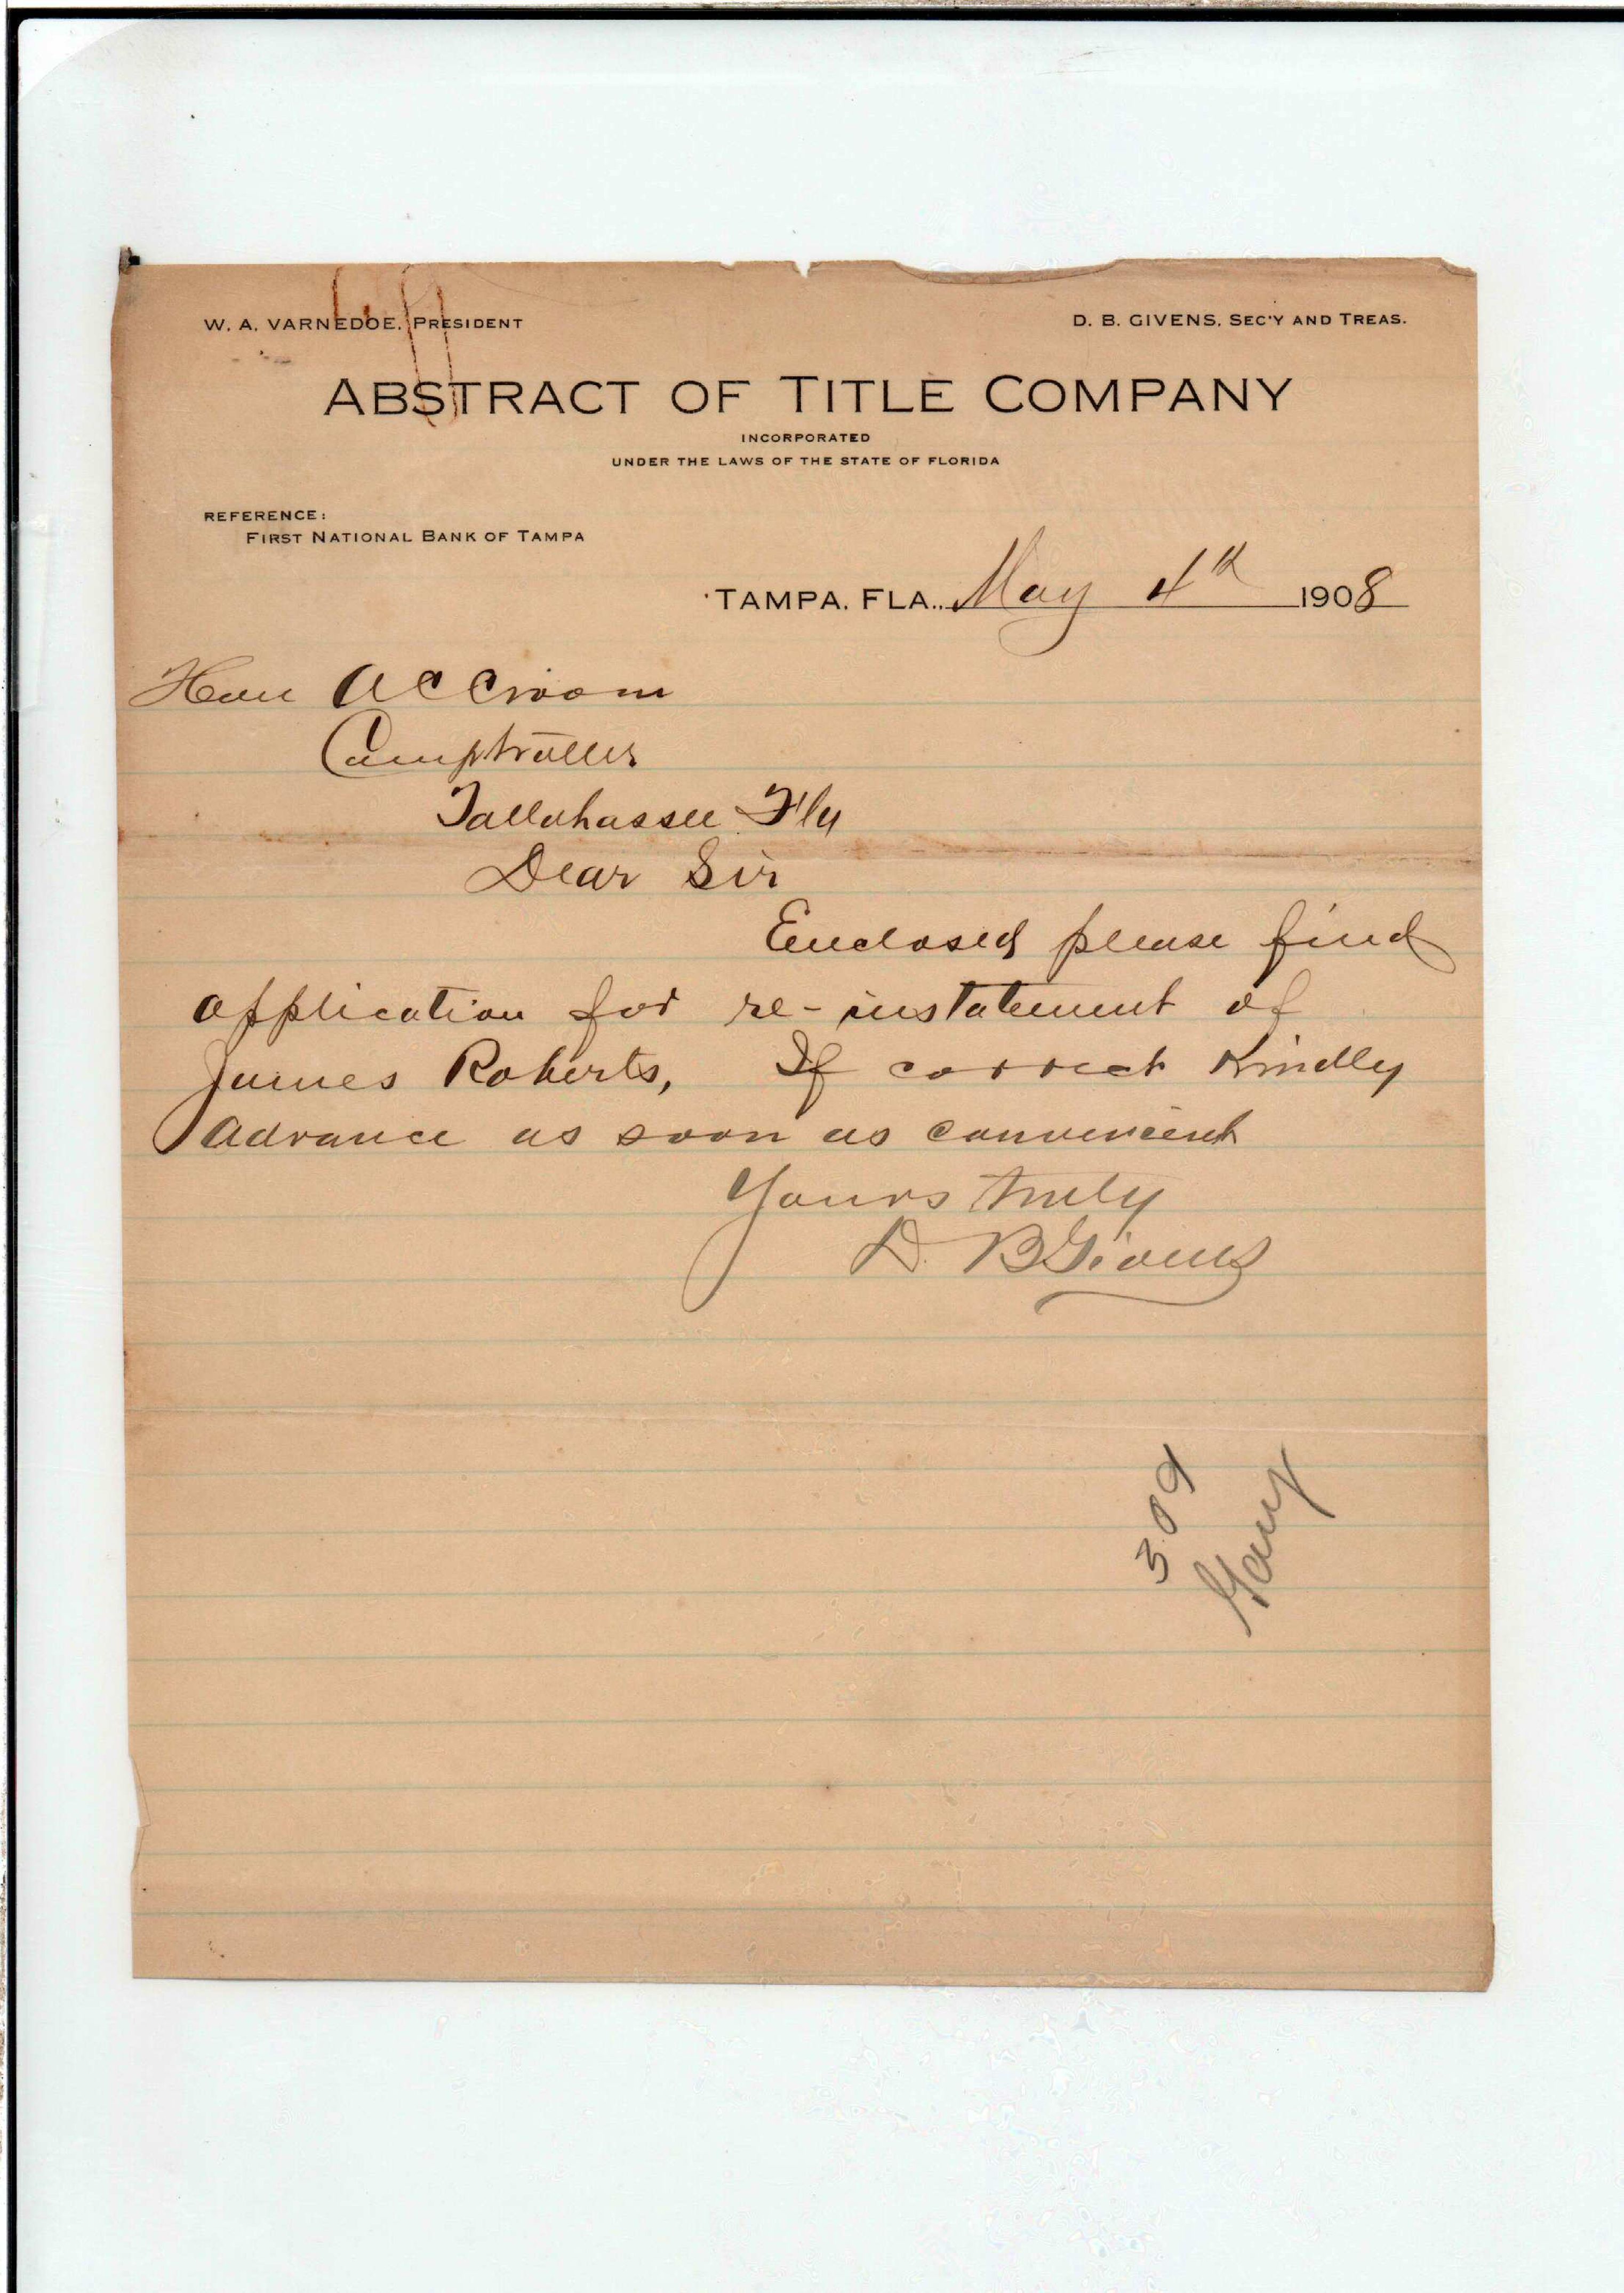 W. A. VARNEDOE, PRESIDENT
D. B. GIVENS, SEC'Y AND TREAS.
ABSTRACT OF TITLE COMPANY
INCORPORATED
UNDER THE LAWS OF THE STATE OF FLORIDA
REFERENCE:
FIRST NATIONAL BANK OF TAMPA
TAMPA, FLA., May 4th 1908
Hon A C Croom
Comptroller
Tallahassee Fla
Dear Sir
Enclosed please find
application for re-instatement of
James Roberts, If correct Kindly
advance as soon as convenient
Yours truly
D. B Givens